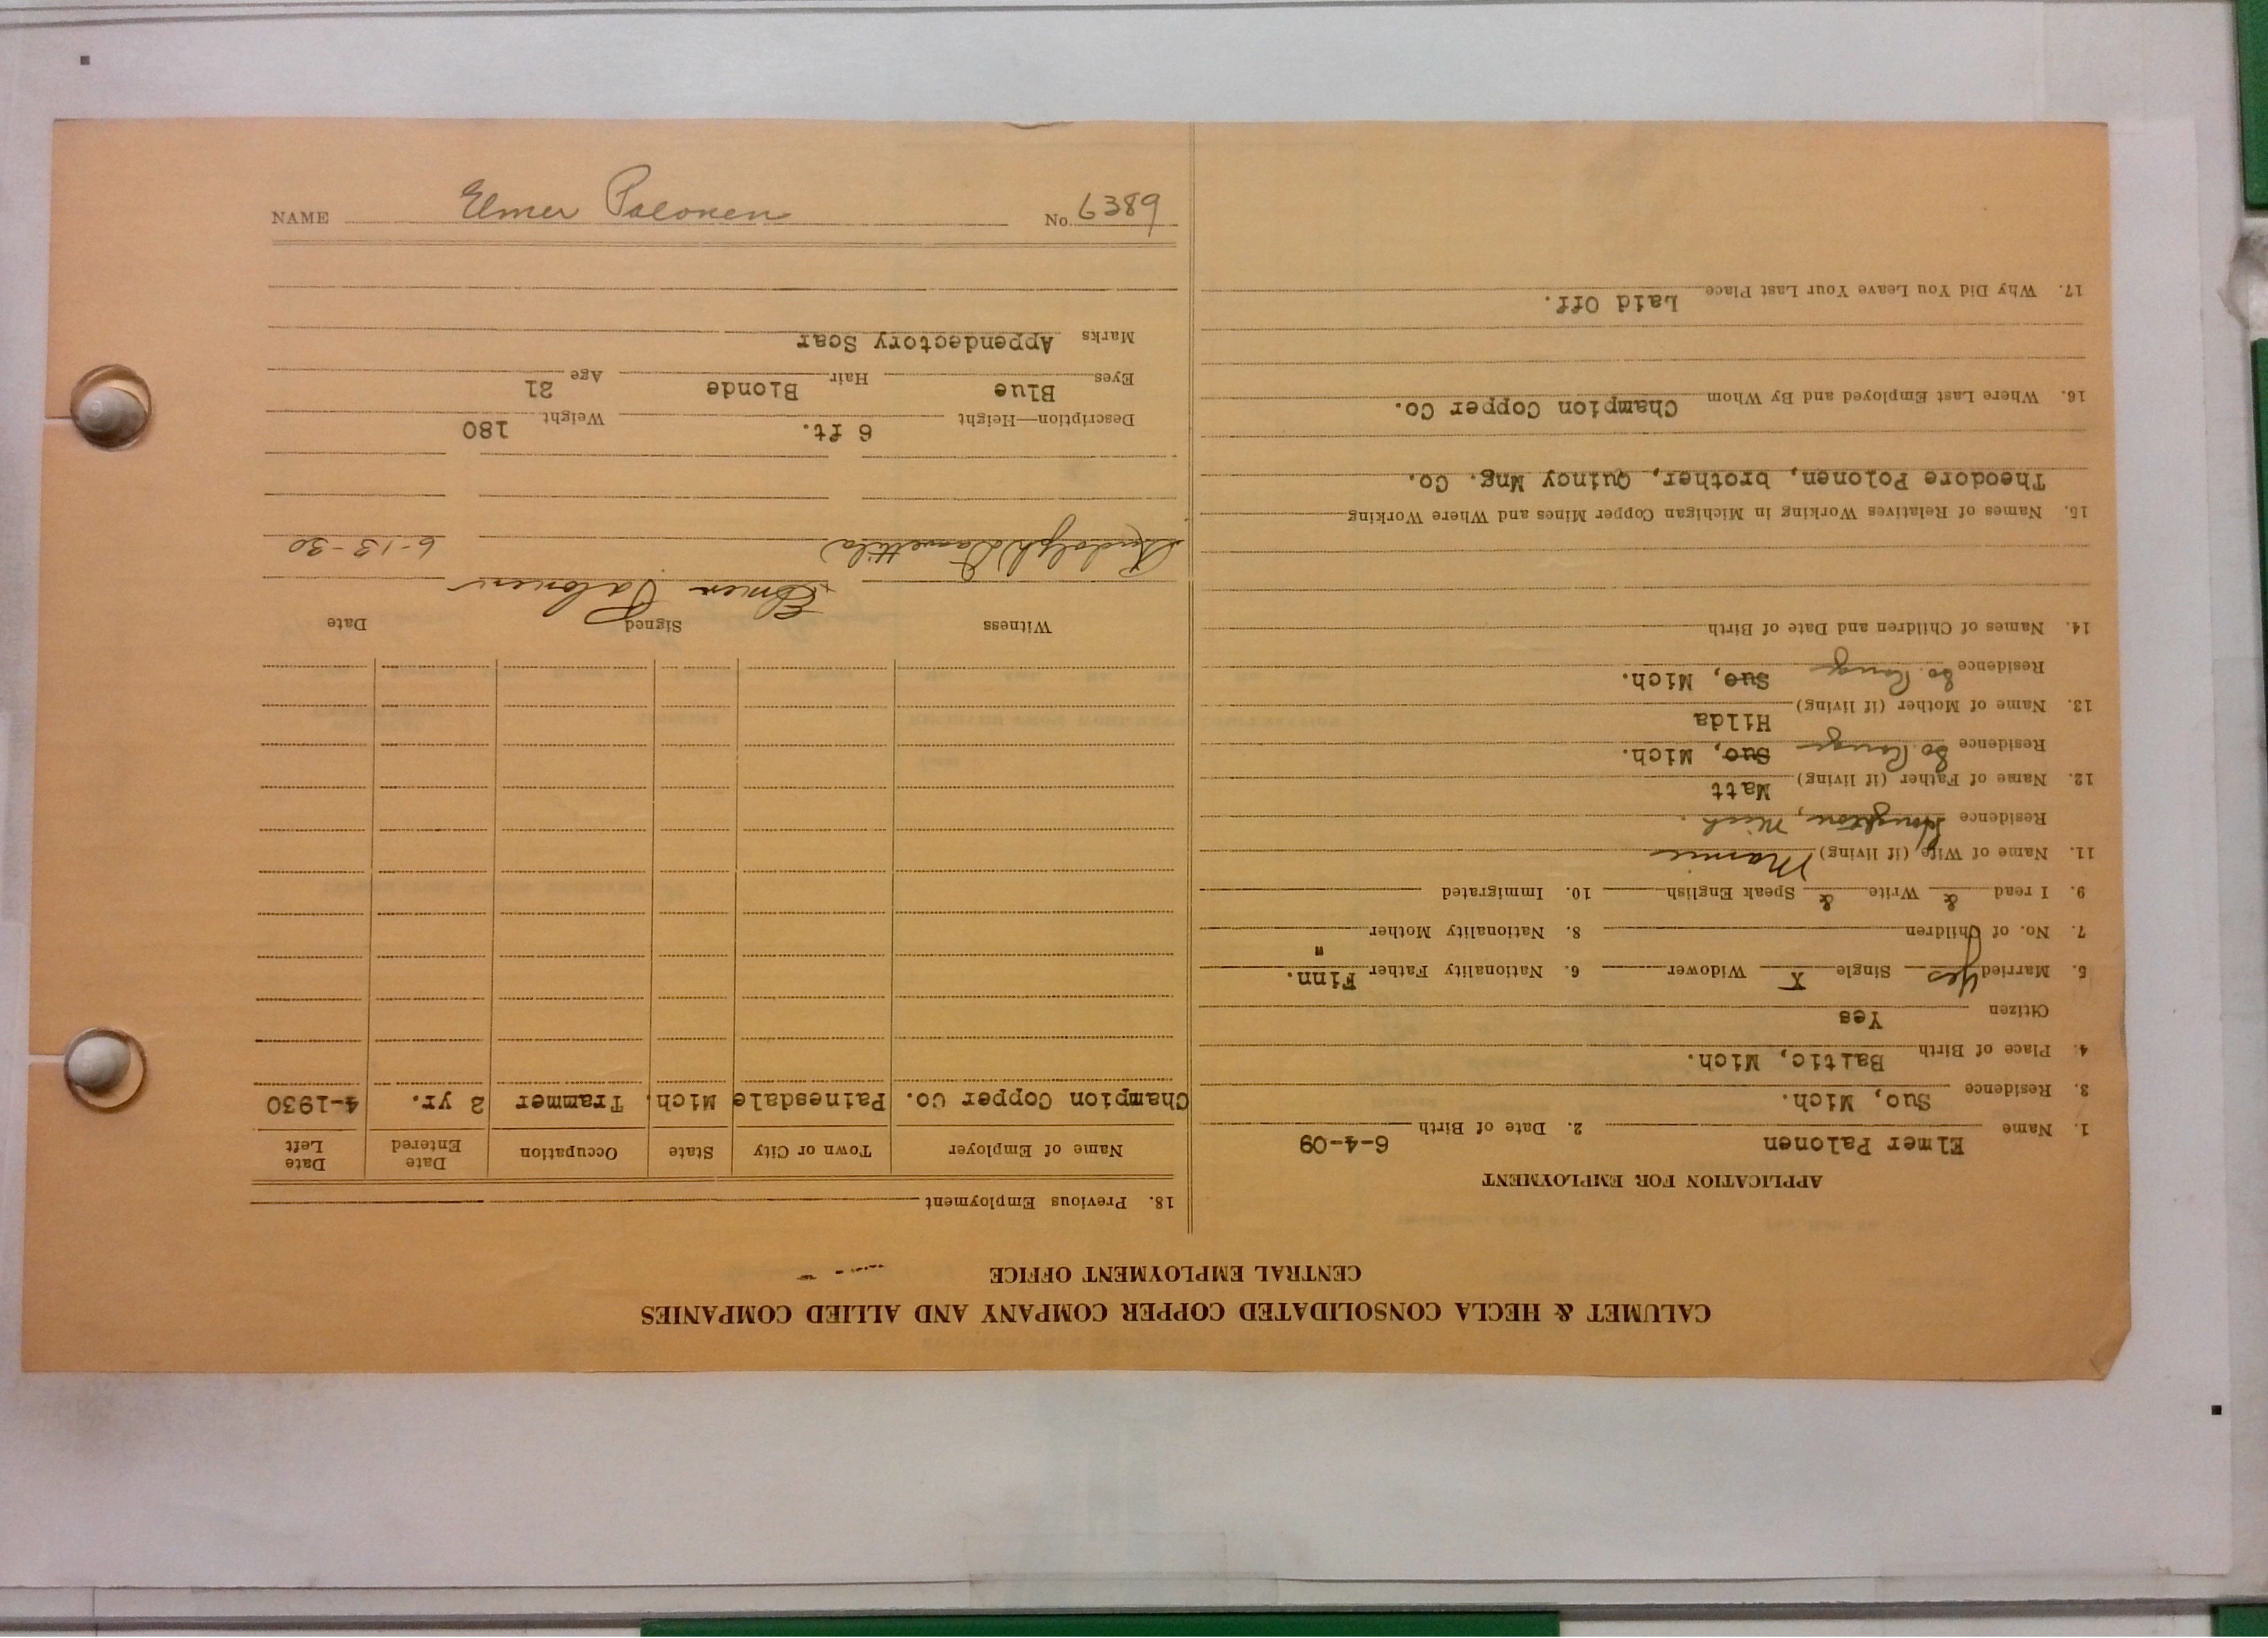 NAME Elmer Palonen No. 6389
CALUMET & HECLA CONSOLIDATED COPPER COMPANY AND ALLIED COMPANIES
CENTRAL EMPLOYMENT OFFICE
APPLICATION FOR EMPLOYMENT
1. Name Elmer Palonen 2. Date of Birth 6-4-09
3. Residence Suo, Mich.
4. Place of Birth Baltic, Mich.
Citizen Yes
5. Married Yes Single X Widower 6. Nationality Father Finn.
7. No. of Children 8. Nationality Mother "
9. I read & Write & Speak English 10. Immigrated
11. Name of Wife (if living) Mamie
Residence Houghton, Mich.
12. Name of Father (if living) Matt
Residence So. Range Suo, Mich.
13. Name of Mother (if living) Hilda
Residence So. Range Suo, Mich.
14. Names of Children and Date of Birth
15. Names of Relatives Working in Michigan Copper Mines and Where Working
Theodore Polonen, brother, Quincy Mng. Co.
16. Where Last Employed and By Whom Champion Copper Co.
17. Why Did You Leave Your Last Place Laid Off.
18. Previous Employment
Name of Employer Town or City State Occupation Date Entered Date Left
Champion Copper Co. Painesdale Mich. Trammer 2 yr. 4-1930
Witness Signed Date
Elmer Palonen
Rudolph 6-13-30
Description—Height 6 ft. Weight 180
Eyes Blue Hair Blonde Age 21
Marks Appendectory Scar